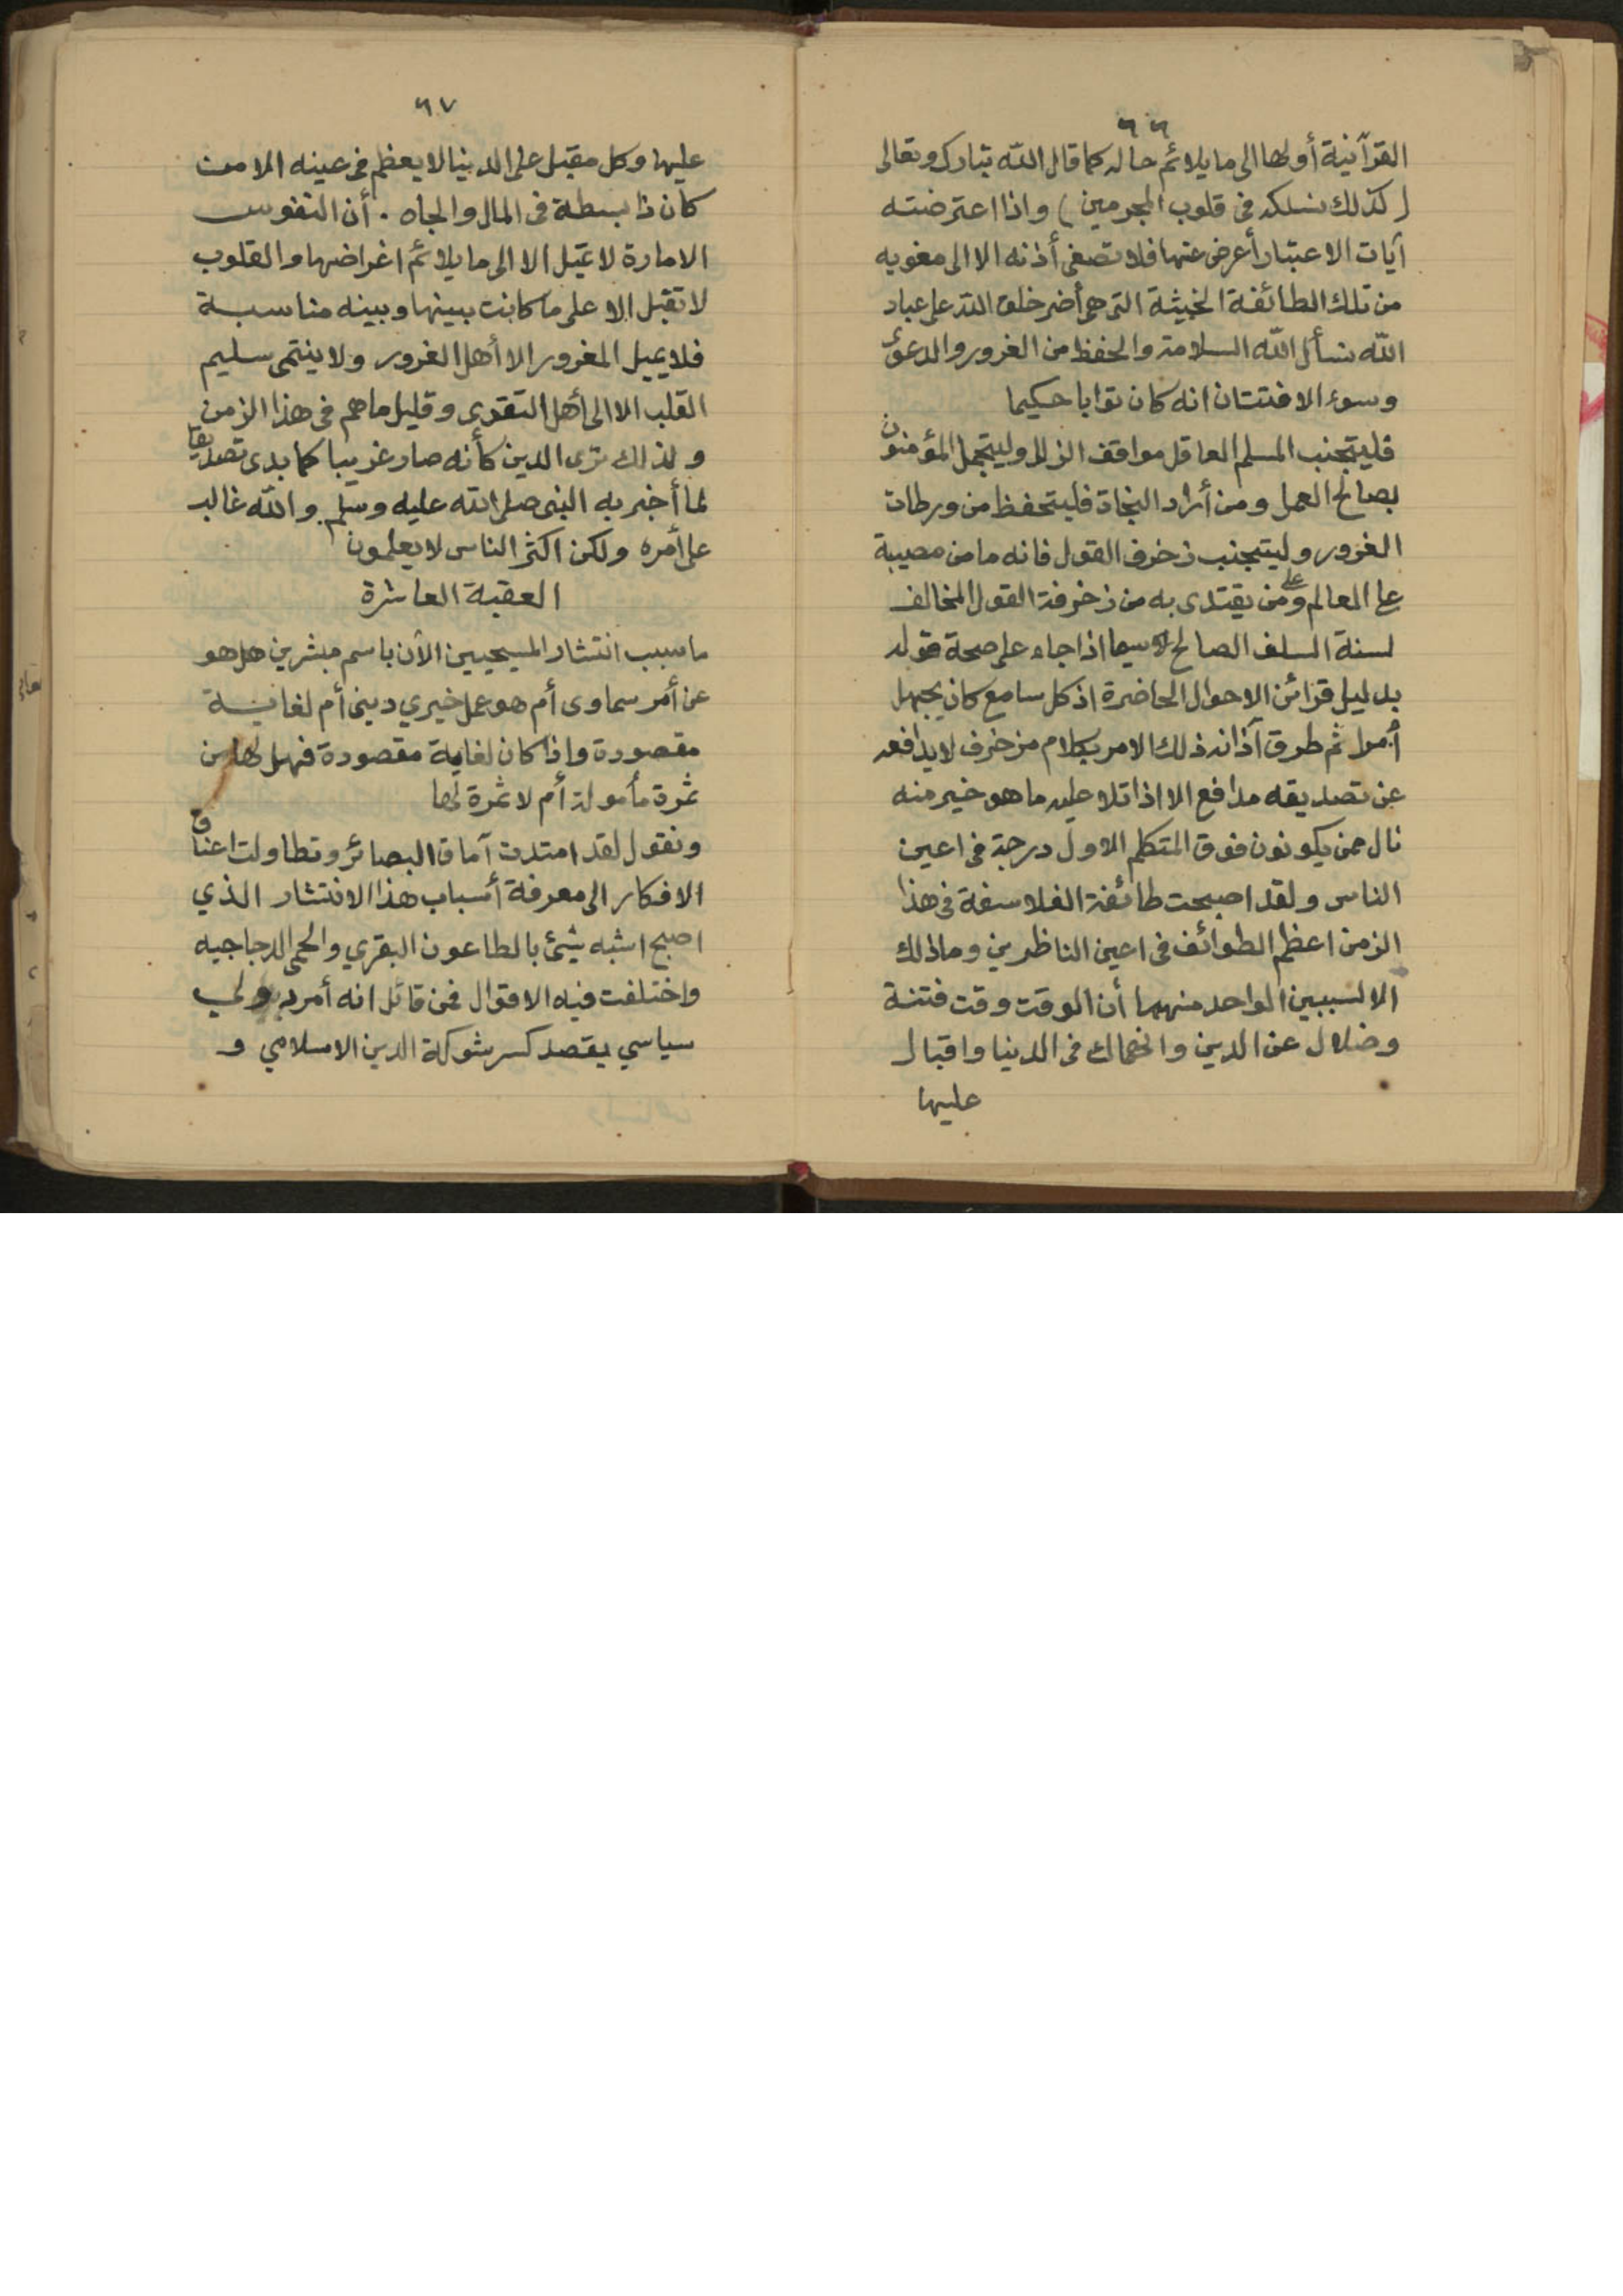 ٦٦
القرآنية أولها الى ما يلائم حاله كما قال الله تبارك وتعالى
(كذلك نسلكه فى قلوب المجرمين) واذا اعترضته
آيات الاعتبار أعرض عنها فلا تصغى أذنه الا الى مغويه
من تلك الطائفة الخبيثة التى هى أضر خلق الله على عباد
الله نسأل الله السلامة والحفظ من الغرور والدعوى
وسوء الافتتان انه كان توابا حكيما
فليتجنب المسلم العاقل مواقف الزلل وليتجمل المؤمنون
بصالح العمل ومن أراد النجاة فليتحفظ من ورطات
الغرور وليتجنب زخرف القول فانه ما من مصيبة
على العالم وعلى من يقتدى به من زخرفة القول المخالف
لسنة السلف الصالح لاسيما اذا جاء على صحة قوله
بدليل قرائن الاحوال الحاضرة اذ كل سامع كان يجهل
أمرا ثم طرق آذانه ذلك الامر بكلام مزخرف لا يدافعه
عن تصديقه مدافع الا اذا تلا عليه ما هو خير منه
نال ممن يكونون فوق المتكلم الاول درجة فى اعين
الناس ولقد اصبحت طائفة الفلاسفة فى هذا
الزمن اعظم الطوائف فى اعين الناظرين وما ذلك
الا لسببين الواحد منهما أن الوقت وقت فتنة
وضلال عن الدين وانهماك فى الدنيا واقبال
عليها
٦٧
عليها وكل مقبل على الدنيا لا يعظم فى عينه الا من
كان ذا بسطة فى المال والجاه . أن النفوس
الامارة لا تميل الا الى ما يلائم اغراضها والقلوب
لا تقبل الا على ما كانت بينها وبينه مناسبة
فلا يميل المغرور الا أهل الغرور ولا ينتمى سليم
القلب الا الى أهل التقوى وقليل ما هم فى هذا الزمن
ولذلك ترى الدين كأنه صار غريبا كما بدى تصديقا
لما أخبر به النبى صلى الله عليه وسلم والله غالب
على أمره ولكن اكثر الناس لا يعلمون
العقبة العاشرة
ما سبب انتشار المسيحيين الآن باسم مبشرين هل هو
عن أمر سماوى أم هو عمل خيري دينى أم لغاية
مقصودة واذا كان لغاية مقصودة فهل لها من
ثمرة مأمولة أم لا ثمرة لها
ونقول لقد امتدت آماق البصائر وتطاولت اعناق
الافكار الى معرفة أسباب هذا الانتشار الذي
اصبح اشبه شيئ بالطاعون البقري والحمى الدجاجيه
واختلفت فيه الاقوال فمن قائل انه أمر دولي
سياسي يقصد كسر شوكة الدين الاسلامي و